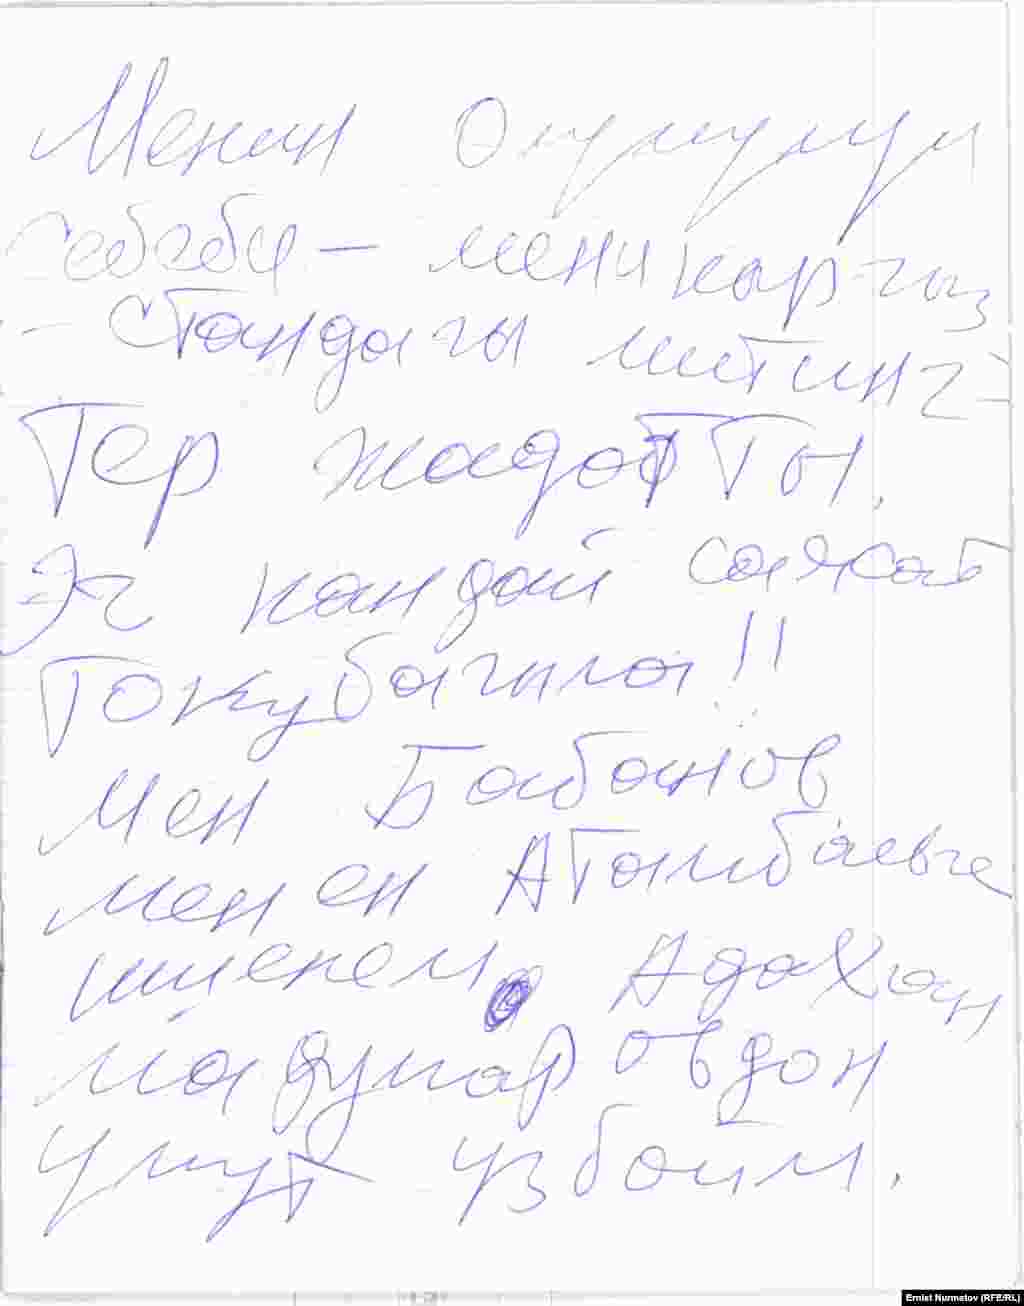 Менин Өлүмүмүн
себеби – мени кыргыз
- стандагы митинг-
тер жадатты.
Эч кандай саясат
тожубагыла!!
Мен Бабанов
менен Атамбаевге
ишенем. Адахан
Мадумаровдон
үмүт үзбөйм.
Ernist Nurmatov (RFE/RL)